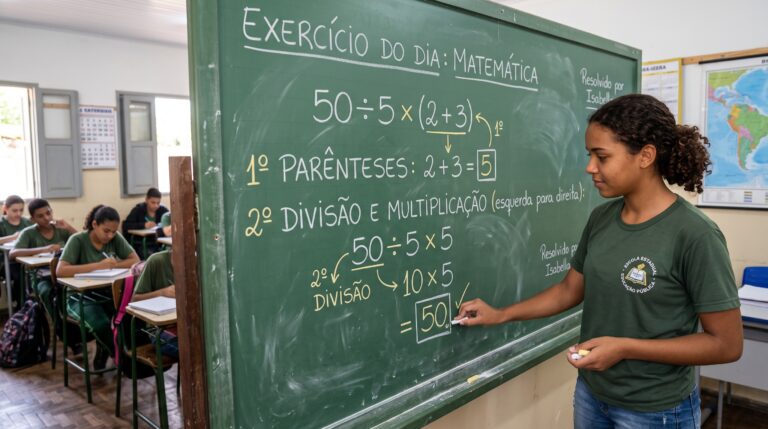 EXERCÍCIO DO DIA: MATEMÁTICA
Resolvido por
Isabella
50 ÷ 5 × (2 + 3)
1º
1º PARÊNTESES: 2 + 3 = 5
2º DIVISÃO E MULTIPLICAÇÃO (esquerda para direita):
50 ÷ 5 × 5
2º
DIVISÃO
10 × 5
= 50. ✓
Resolvido por
Isabella
ESCOLA ESTADUAL
EDUCAÇÃO PÚBLICA